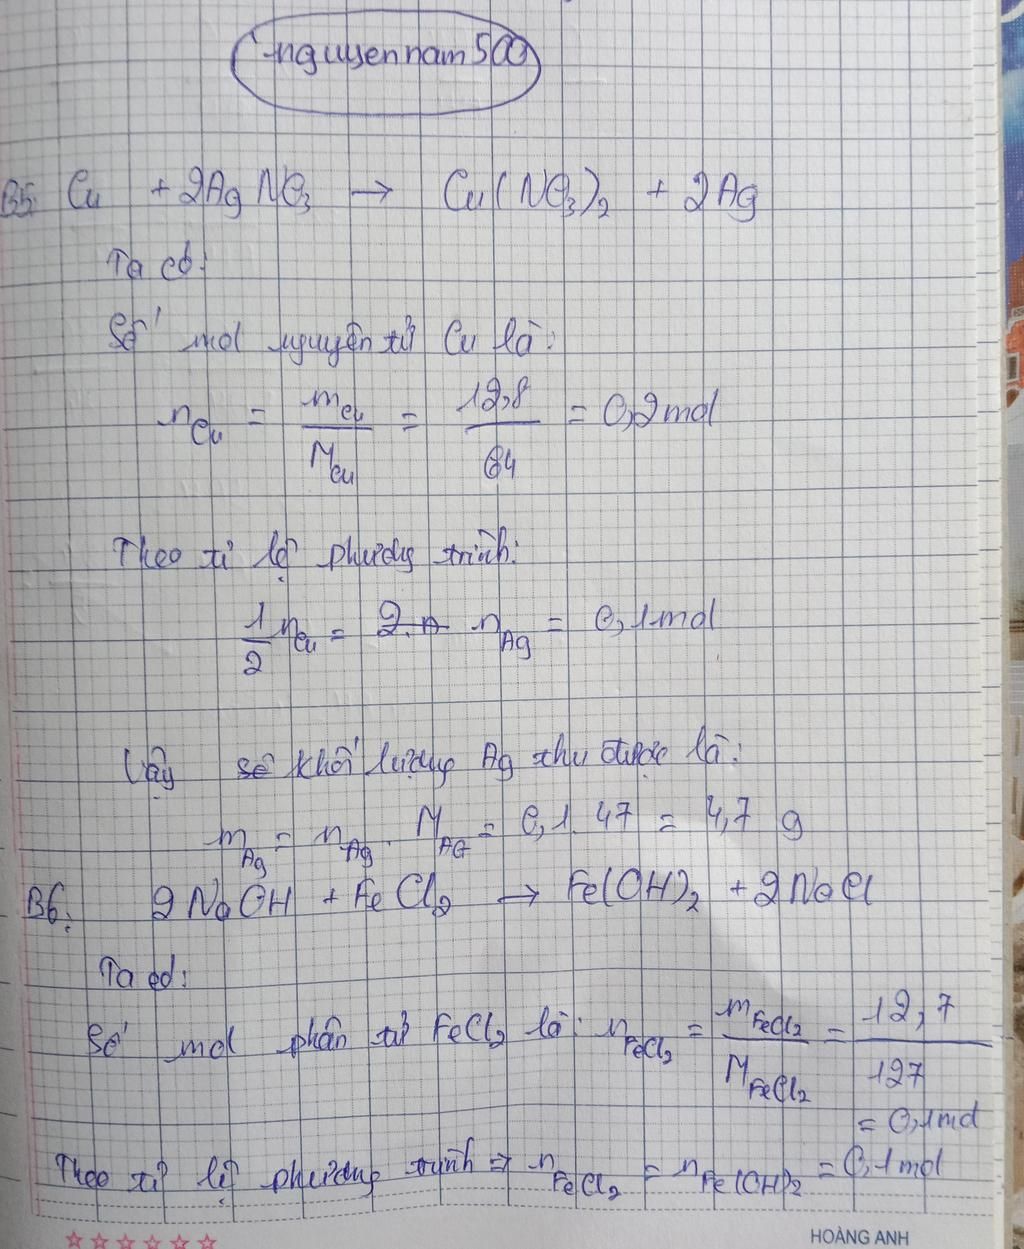 nguyennam500
B5: Cu + 2AgNO₃ → Cu(NO₃)₂ + 2Ag
Ta có:
Số mol nguyên tử Cu là:
n_Cu = m_Cu / M_Cu = 12,8 / 64 = 0,2 mol
Theo tỉ lệ phương trình:
1/2 n_Cu = n_Ag = 0,1 mol
Vậy số khối lượng Ag thu được là:
m_Ag = n_Ag . M_AG = 0,1. 47 = 4,7 g
B6: 2NaOH + FeCl₂ → Fe(OH)₂ + 2NaCl
Ta có:
Số mol phân tử FeCl₂ là: n_FeCl₂ = m_FeCl₂ / M_FeCl₂ = 12,7 / 127
= 0,1 mol
Theo tỉ lệ phương trình ⇒ n_FeCl₂ = n_Fe(OH)₂ = 0,1 mol
HOÀNG ANH